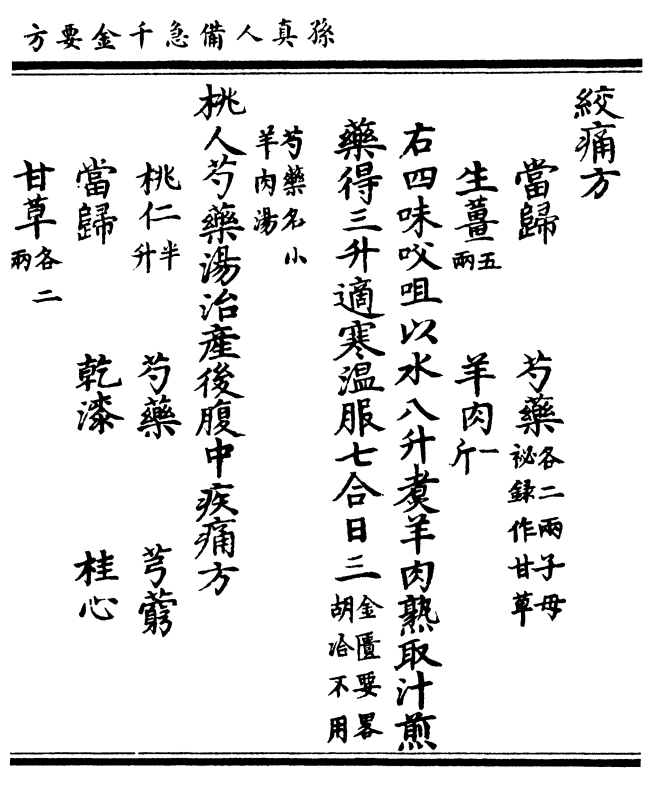 孫真人備急千金要方
絞痛方
當歸 芍藥各二兩子母祕録作甘草
生薑五兩 羊肉一斤
右四味㕮咀以水八升煑羊肉熟取汁煎
藥得三升適寒温服七合日三金匱要畧胡洽不用
芍藥名小羊肉湯
桃人芍藥湯治產後腹中疾痛方
桃仁半升 芍藥 芎藭
當歸 乾漆 桂心
甘草各二兩